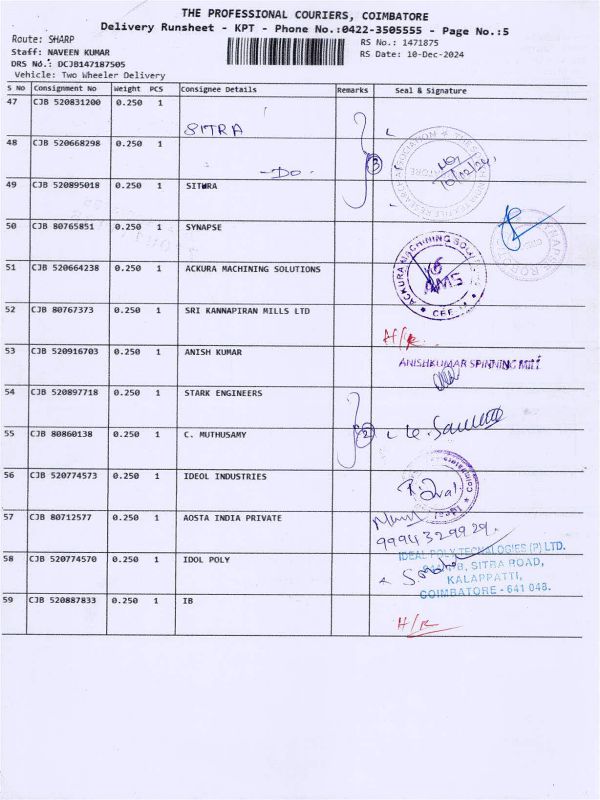 THE PROFESSIONAL COURIERS, COIMBATORE
Delivery Runsheet - KPT - Phone No.:0422-3505555 - Page No.:5
Route: SHARP
RS No.: 1471875
Staff: NAVEEN KUMAR
RS Date: 10-Dec-2024
DRS No.: DCJB147187505
Vehicle: Two Wheeler Delivery
S No Consignment No Weight PCS Consignee Details Remarks Seal & Signature
47 CJB 520831200 0.250 1
SITRA
48 CJB 520668298 0.250 1
-Do-
3
10/12/24
49 CJB 520895018 0.250 1 SITURA
50 CJB 80765851 0.250 1 SYNAPSE
51 CJB 520664238 0.250 1 ACKURA MACHINING SOLUTIONS
ACKURA MACHINING SOLUTIONS
AMS
52 CJB 80767373 0.250 1 SRI KANNAPIRAN MILLS LTD
H/R
53 CJB 520916703 0.250 1 ANISH KUMAR
ANISHKUMAR SPINNING MILL
54 CJB 520897718 0.250 1 STARK ENGINEERS
2
55 CJB 80860138 0.250 1 C. MUTHUSAMY
56 CJB 520774573 0.250 1 IDEOL INDUSTRIES
57 CJB 80712577 0.250 1 AOSTA INDIA PRIVATE
9994329929.
58 CJB 520774570 0.250 1 IDOL POLY
IDEAL POLY TECHNALOGIES (P) LTD.
SITRA ROAD,
KALAPPATTI,
COIMBATORE - 641 048.
59 CJB 520887833 0.250 1 IB
H/R